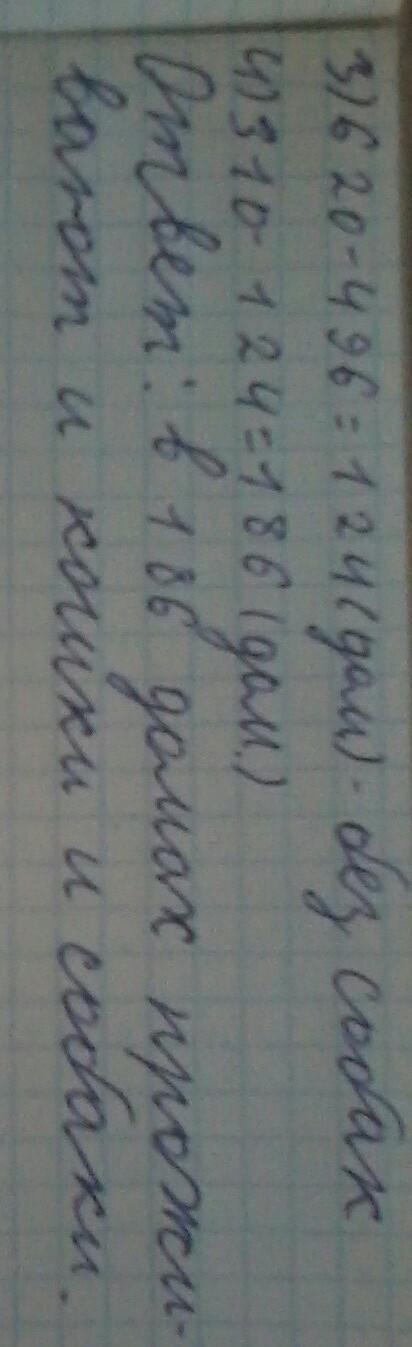 3) 620-496=124(дом)- без собак
4) 310-124=186(дом.)
Ответ: в 186 домах прожи-
вают и кошки и собаки.